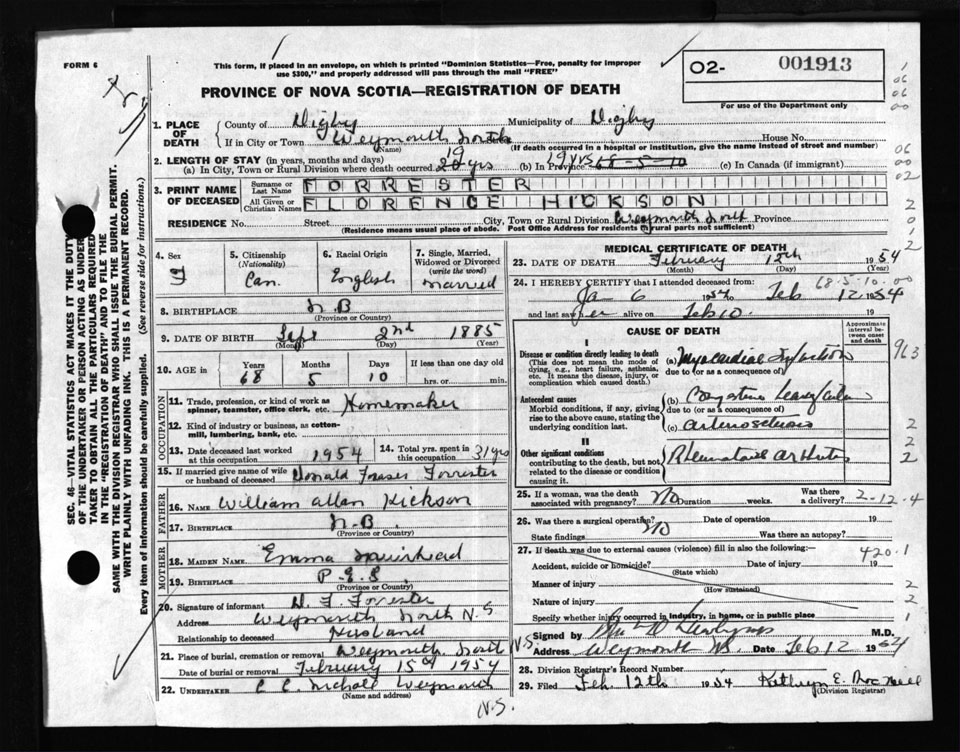 FORM 6
This form, if placed in an envelope, on which is printed "Dominion Statistics—Free, penalty for improper
use $300," and properly addressed will pass through the mail "FREE"
O2- 001913
For use of the Department only
PROVINCE OF NOVA SCOTIA—REGISTRATION OF DEATH
SEC. 46—VITAL STATISTICS ACT MAKES IT THE DUTY
OF THE UNDERTAKER OR PERSON ACTING AS UNDER-
TAKER TO OBTAIN ALL THE PARTICULARS REQUIRED
IN THE "REGISTRATION OF DEATH" AND TO FILE THE
SAME WITH THE DIVISION REGISTRAR WHO SHALL ISSUE THE BURIAL PERMIT.
WRITE PLAINLY WITH UNFADING INK. THIS IS A PERMANENT RECORD.
Every item of Information should be carefully supplied. (See reverse side for instructions.)
1. PLACE OF DEATH
County of Digby Municipality of Digby
If in City or Town Weymouth North House No.
(Name) (If death occurred in a hospital or institution, give the name instead of street and number.
2. LENGTH OF STAY (in years, months and days)
(a) In City, Town or Rural Division where death occurred 19 20 yrs (b) In Province 19 yrs 68-5-10 (c) In Canada (if immigrant)
3. PRINT NAME OF DECEASED
Surname or Last Name FORRESTER
All Given or Christian Names FLORENCE HICKSON
RESIDENCE No. Street City, Town or Rural Division Weymouth North Province
(Residence means usual place of abode. Post Office Address for residents of rural parts not sufficient)
4. Sex F
5. Citizenship (Nationality) Can.
6. Racial Origin English
7. Single, Married, Widowed or Divorced (write the word) married
8. BIRTHPLACE N B
(Province or Country)
9. DATE OF BIRTH Sept 2nd 1885
(Month) (Day) (Year)
10. AGE in Years 68 Months 5 Days 10 If less than one day old
hrs. or min.
OCCUPATION
11. Trade, profession, or kind of work as
spinner, teamster, office clerk, etc. Homemaker
12. Kind of industry or business, as cotton-
mill, lumbering, bank, etc.
13. Date deceased last worked at this occupation 1954
14. Total yrs. spent in this occupation 31 yrs
15. If married give name of wife
or husband of deceased Donald Fraser Forrester
FATHER
16. NAME William Allan Hickson
17. BIRTHPLACE N.B.
MOTHER
18. MAIDEN NAME Emma Muirhead
19. BIRTHPLACE P.E.I.
(Province or Country)
20. Signature of informant D. F. Forrester
Address Weymouth North N.S
Relationship to deceased Husband
21. Place of burial, cremation or removal Weymouth North N.S
Date of burial or removal February 15th 1954
22. UNDERTAKER C C Nichols Weymouth
(Name and address)
N.S.
MEDICAL CERTIFICATE OF DEATH
23. DATE OF DEATH February 12th 1954
(Month) (Day) (Year)
68-5-10-00
24. I HEREBY CERTIFY that I attended deceased from:
Ja 6 1954 to Feb 12 1954
and last saw her alive on Feb 10. 19
CAUSE OF DEATH
Approximate interval between onset and death
I
Disease or condition directly leading to death
(This does not mean the mode of
dying, e.g., heart failure, asthenia,
etc. It means the disease, injury, or
complication which caused death.)
(a) Myocardial Infarction
due to (or as a consequence of)
Antecedent causes
Morbid conditions, if any, giving
rise to the above cause, stating the
underlying condition last.
(b) Congestive
due to (or as a consequence of)
(c) arteriosclerosis
II
Other significant conditions
contributing to the death, but not
related to the disease or condition
causing it.
Rheumatoid arthritis
25. If a woman, was the death
associated with pregnancy? No Duration weeks. Was there a delivery? 2-12-4
26. Was there a surgical operation? No Date of operation 19
State findings Was there an autopsy?
27. If death was due to external causes (violence) fill in also the following: 420.1
Accident, suicide or homicide? Date of injury 19
(State which)
Manner of injury
(How sustained)
Nature of injury
Specify whether injury occurred in industry, in home, or in public place
Signed by M.D.
Address Weymouth NS. Date Feb 12 1954
28. Division Registrar's Record Number
29. Filed Feb. 12th 1954 Kathryn E.
(Division Registrar)
1
06
06
00
06
00
02
2
0
1
2
963
2
2
2
2
2
1